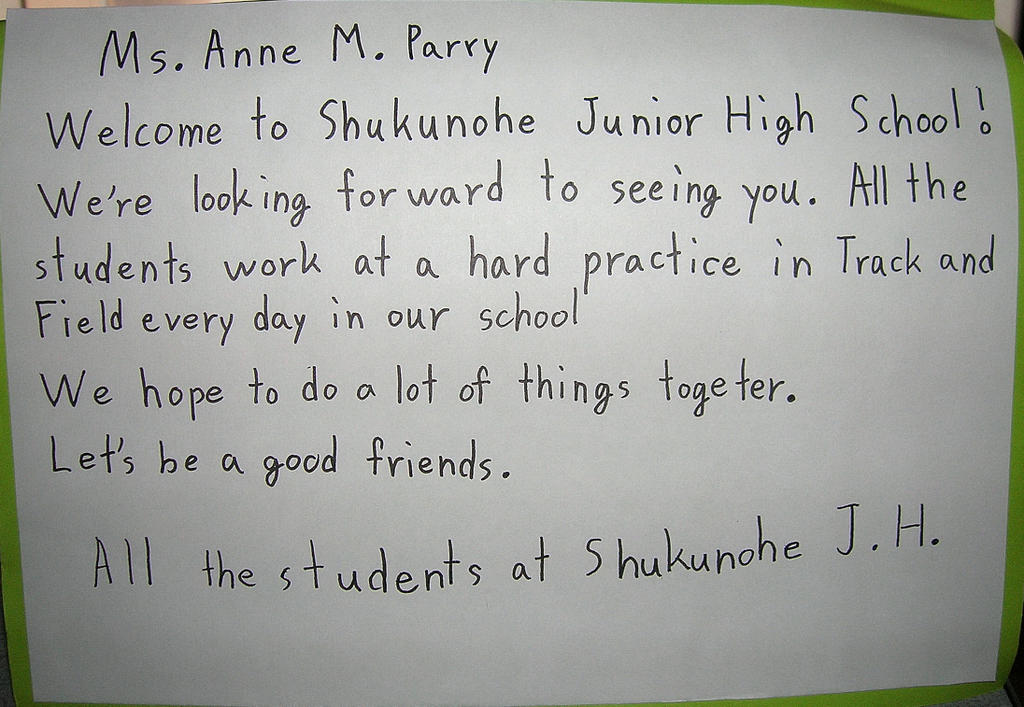 Ms. Anne M. Parry
Welcome to Shukunohe Junior High School!
We're looking forward to seeing you. All the
students work at a hard practice in Track and
Field every day in our school
We hope to do a lot of things togeter.
Let's be a good friends.
All the students at Shukunohe J.H.